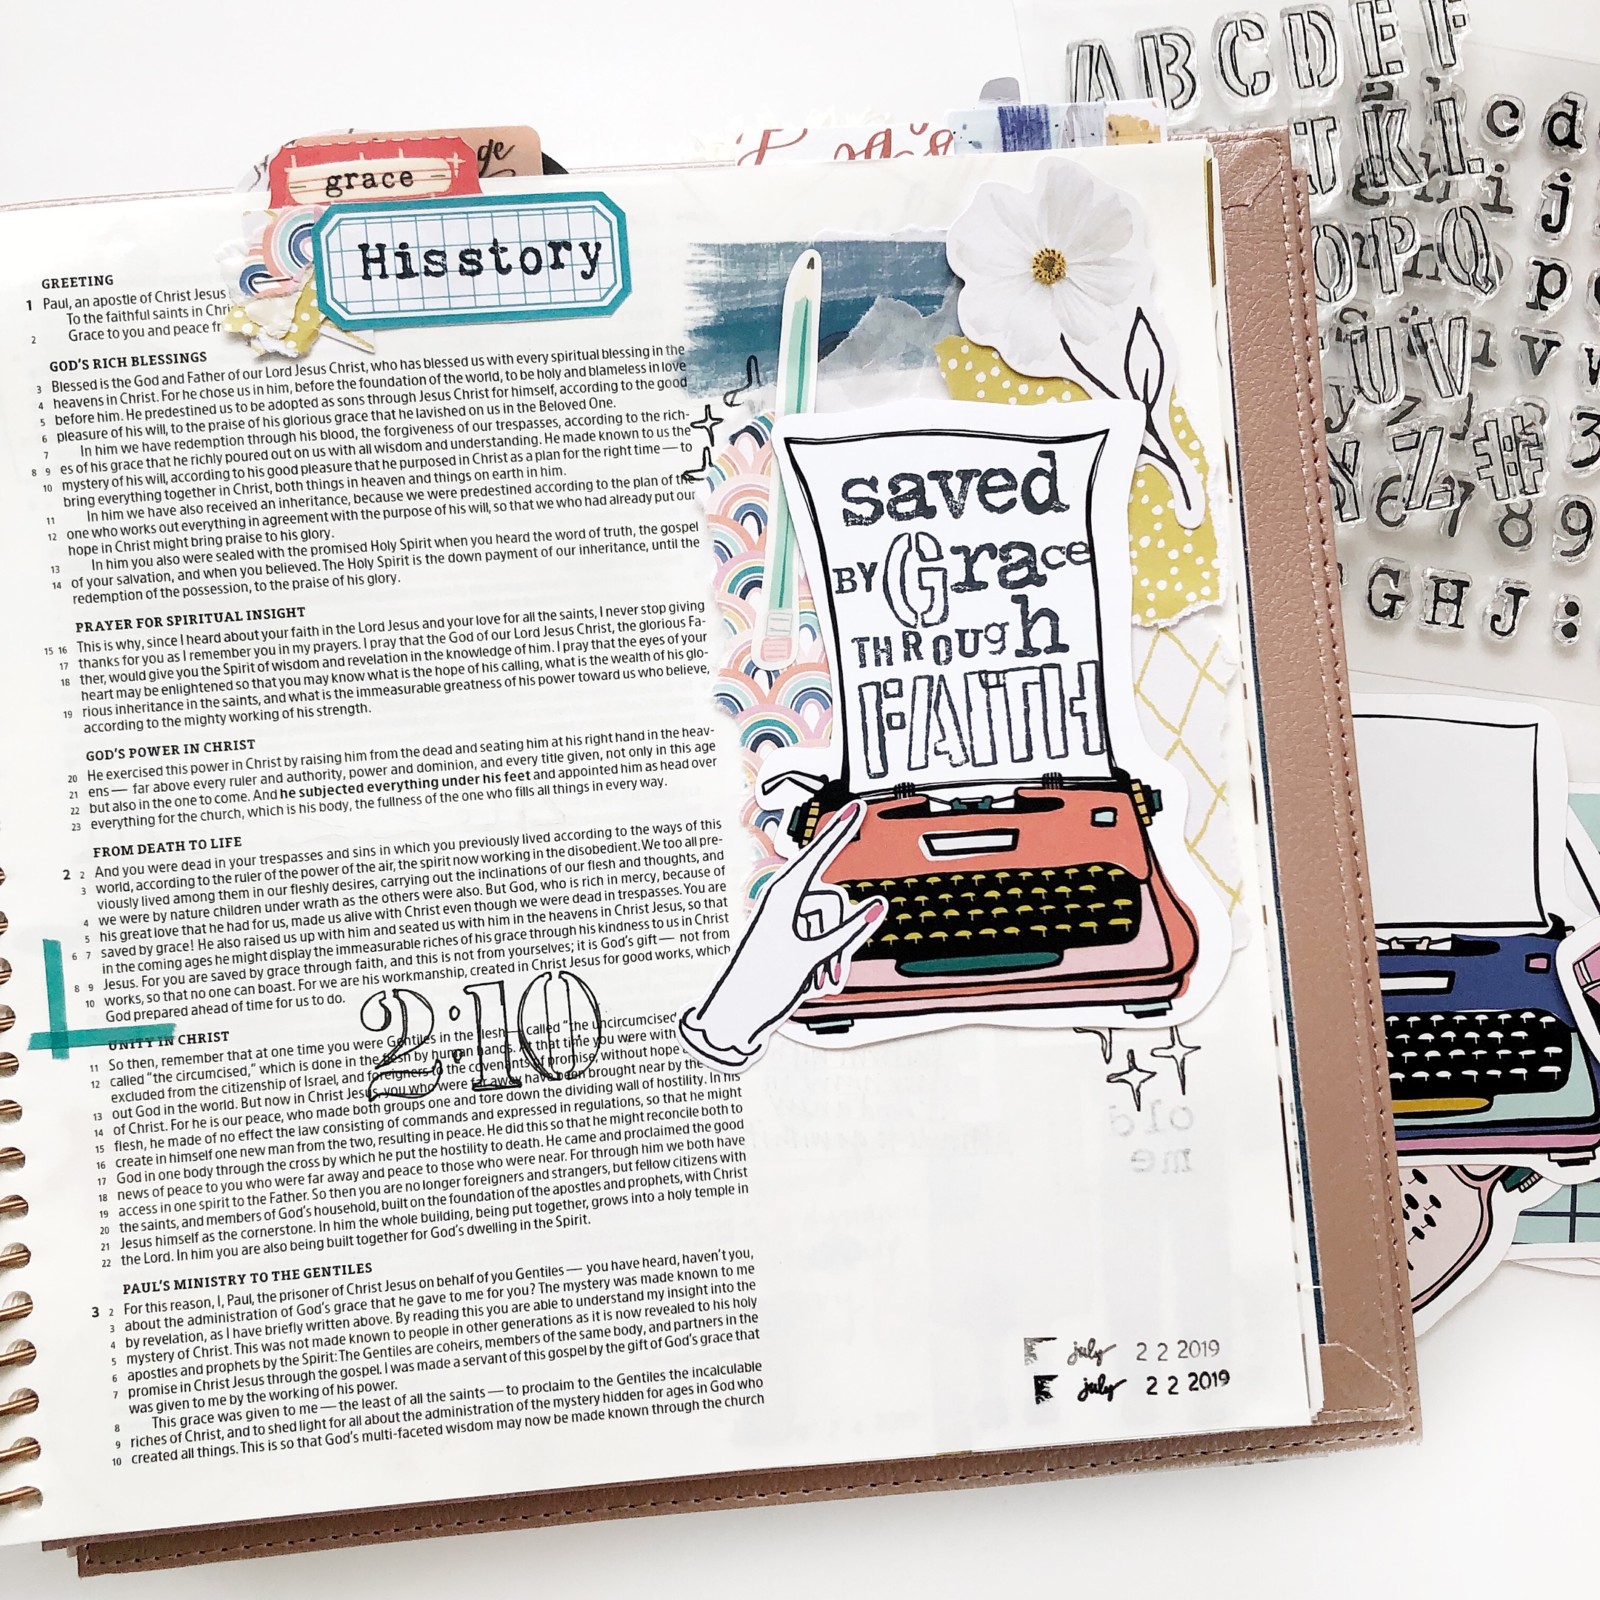 ABCDEF
JKL
c d
i j
OPQ
p
UV
v
YZ#
3
6 7 8 9
GHJ:
ge
grace
His story
GREETING
1 Paul, an apostle of Christ Jesus
To the faithful saints in
2 Grace to you and peace
GOD'S RICH BLESSINGS
3 Blessed is the God and Father of our Lord Jesus Christ, who has blessed us with every spiritual blessing in the
4 heavens in Christ. For he chose us in him, before the foundation of the world, to be holy and blameless in love
5 before him. He predestined us to be adopted as sons through Jesus Christ for himself, according to the good
6 pleasure of his will, to the praise of his glorious grace that he lavished on us in the Beloved One.
7 In him we have redemption through his blood, the forgiveness of our trespasses, according to the rich-
8 9 es of his grace that he richly poured out on us with all wisdom and understanding. He made known to us the
10 mystery of his will, according to his good pleasure that he purposed in Christ as a plan for the right time — to
bring everything together in Christ, both things in heaven and things on earth in him.
11 In him we have also received an inheritance, because we were predestined according to the plan of the
12 one who works out everything in agreement with the purpose of his will, so that we who had already put our
hope in Christ might bring praise to his glory.
13 In him you also were sealed with the promised Holy Spirit when you heard the word of truth, the gospel
14 of your salvation, and when you believed. The Holy Spirit is the down payment of our inheritance, until the
redemption of the possession, to the praise of his glory.
PRAYER FOR SPIRITUAL INSIGHT
15 16 This is why, since I heard about your faith in the Lord Jesus and your love for all the saints, I never stop giving
17 thanks for you as I remember you in my prayers. I pray that the God of our Lord Jesus Christ, the glorious Fa-
18 ther, would give you the Spirit of wisdom and revelation in the knowledge of him. I pray that the eyes of your
heart may be enlightened so that you may know what is the hope of his calling, what is the wealth of his glo-
19 rious inheritance in the saints, and what is the immeasurable greatness of his power toward us who believe,
according to the mighty working of his strength.
GOD'S POWER IN CHRIST
20 He exercised this power in Christ by raising him from the dead and seating him at his right hand in the heav-
21 ens — far above every ruler and authority, power and dominion, and every title given, not only in this age
22 but also in the one to come. And he subjected everything under his feet and appointed him as head over
23 everything for the church, which is his body, the fullness of the one who fills all things in every way.
FROM DEATH TO LIFE
2 2 And you were dead in your trespasses and sins in which you previously lived according to the ways of this
3 world, according to the ruler of the power of the air, the spirit now working in the disobedient. We too all pre-
viously lived among them in our fleshly desires, carrying out the inclinations of our flesh and thoughts, and
4 we were by nature children under wrath as the others were also. But God, who is rich in mercy, because of
5 his great love that he had for us, made us alive with Christ even though we were dead in trespasses. You are
6 7 saved by grace! He also raised us up with him and seated us with him in the heavens in Christ Jesus, so that
in the coming ages he might display the immeasurable riches of his grace through his kindness to us in Christ
8 9 Jesus. For you are saved by grace through faith, and this is not from yourselves; it is God's gift — not from
10 works, so that no one can boast. For we are his workmanship, created in Christ Jesus for good works, which
God prepared ahead of time for us to do.
2:10
UNITY IN CHRIST
11 So then, remember that at one time you were Gentiles in the flesh — called "the uncircumcised
12 called "the circumcised," which is done in the flesh by human hands. At that time you were with
excluded from the citizenship of Israel, and foreigners to the covenants of promise, without hope
13 out God in the world. But now in Christ Jesus, you who were far away have been brought near by the
14 of Christ. For he is our peace, who made both groups one and tore down the dividing wall of hostility. In his
15 flesh, he made of no effect the law consisting of commands and expressed in regulations, so that he might
16 create in himself one new man from the two, resulting in peace. He did this so that he might reconcile both to
17 God in one body through the cross by which he put the hostility to death. He came and proclaimed the good
18 news of peace to you who were far away and peace to those who were near. For through him we both have
19 access in one spirit to the Father. So then you are no longer foreigners and strangers, but fellow citizens with
20 the saints, and members of God's household, built on the foundation of the apostles and prophets, with Christ
21 Jesus himself as the cornerstone. In him the whole building, being put together, grows into a holy temple in
22 the Lord. In him you are also being built together for God's dwelling in the Spirit.
PAUL'S MINISTRY TO THE GENTILES
3 2 For this reason, I, Paul, the prisoner of Christ Jesus on behalf of you Gentiles — you have heard, haven't you,
3 about the administration of God's grace that he gave to me for you? The mystery was made known to me
4 by revelation, as I have briefly written above. By reading this you are able to understand my insight into the
5 mystery of Christ. This was not made known to people in other generations as it is now revealed to his holy
6 apostles and prophets by the Spirit: The Gentiles are coheirs, members of the same body, and partners in the
7 promise in Christ Jesus through the gospel. I was made a servant of this gospel by the gift of God's grace that
was given to me by the working of his power.
8 This grace was given to me — the least of all the saints — to proclaim to the Gentiles the incalculable
9 riches of Christ, and to shed light for all about the administration of the mystery hidden for ages in God who
10 created all things. This is so that God's multi-faceted wisdom may now be made known through the church
saved
BY Grace
THROUgh
FAITH
old
me
july 22 2019
july 22 2019